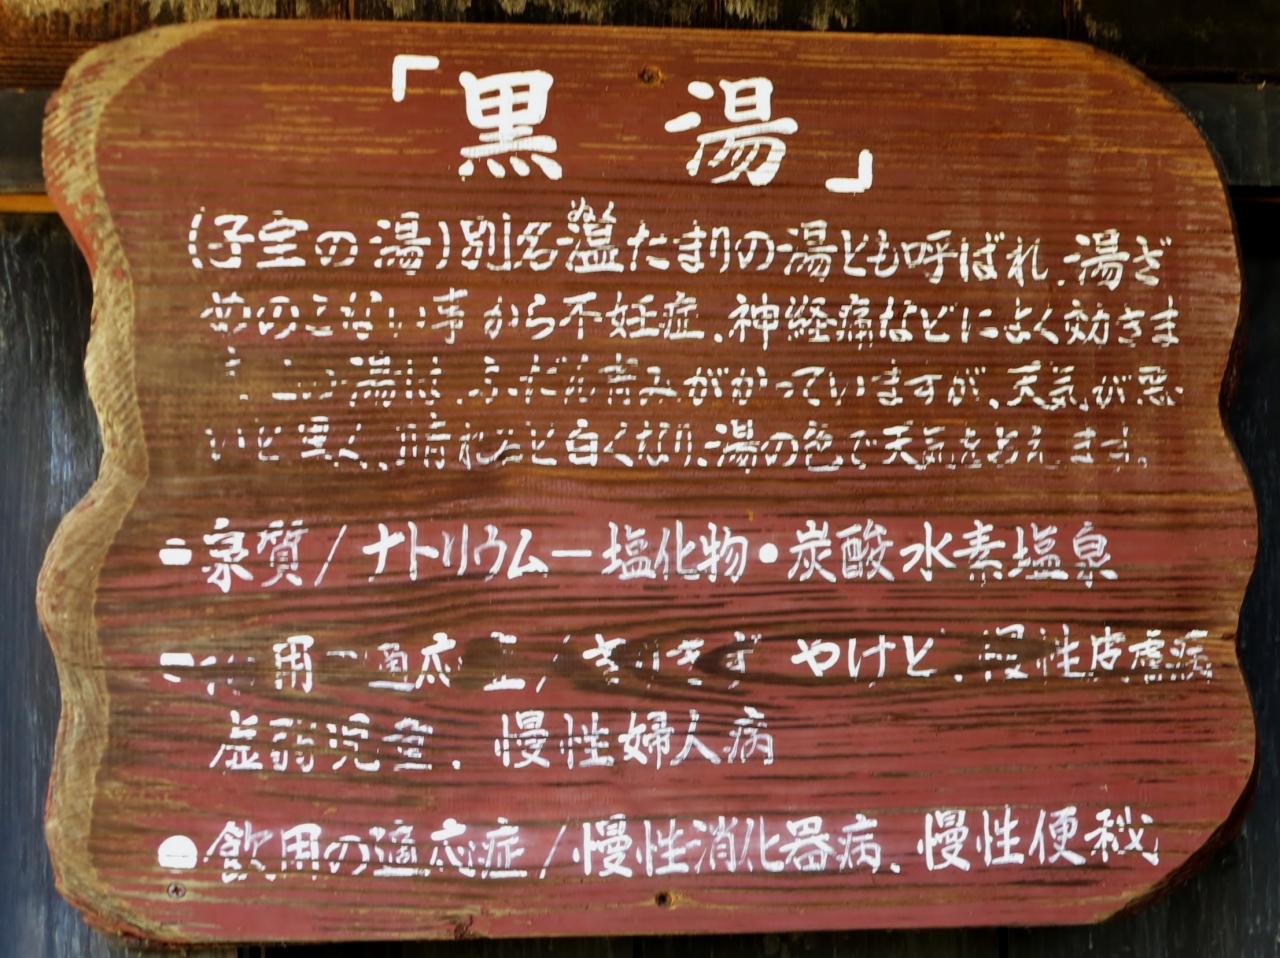 「黒湯」
(子宝の湯)別名温たまりの湯とも呼ばれ、湯ざ
めのこない事から不妊症、神経痛などによく効きま
この湯は、ふだん青みがかっていますが、天気が悪
いと黒く、晴れると白くなり、湯の色で天気をおしえます。
●泉質/ナトリウムー塩化物・炭酸水素塩泉
●用の適応症/きりきず やけど、慢性皮膚病
虚弱児童、慢性婦人病
●飲用の適応症/慢性消化器病、慢性便秘